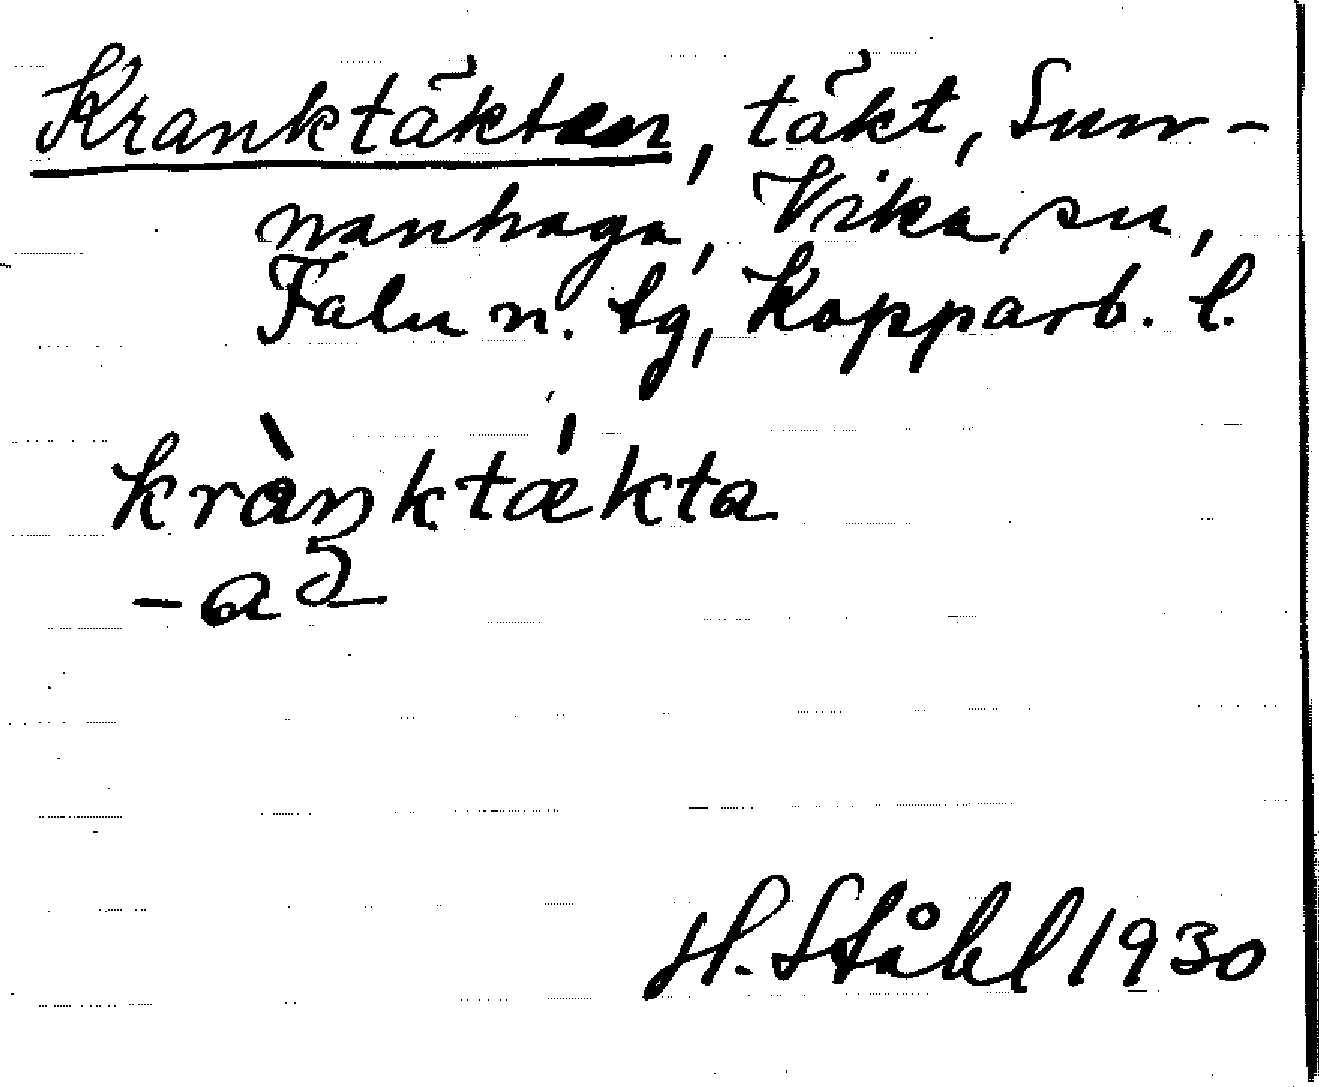 Kranktäkten, täkt, Sun-
nanhaga, Vika sn,
Falu n. tg, Kopparb. l.
krànŋktǽkta
-aд
H. Ståhl 1930